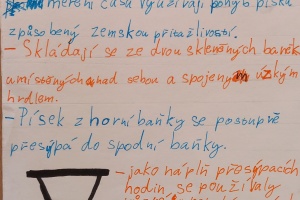 měření času využívají pohyb písku
způsobený zemskou přitažlivostí.
- Skládají se ze dvou skleněných baněk
umístěných nad sebou a spojených úzkým
hrdlem.
- Písek z horní baňky se postupně
přesýpá do spodní baňky.
- jako náplň přesýpacích
hodin, se používaly